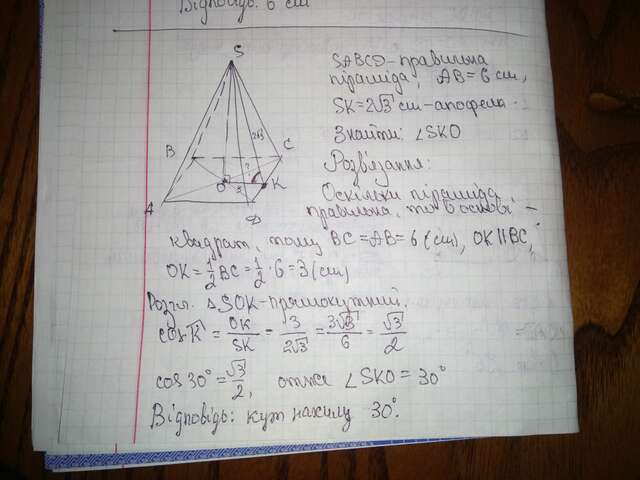 Відповідь: 6 см
SABCD - правильна
піраміда, AB = 6 см,
SK = 2√3 см - апофема
Знайти: ∠SKO
Розв'язання:
Оскільки піраміда
правильна, то в основі -
квадрат, тому BC = AB = 6 (см), OK || BC,
OK = 1/2 BC = 1/2 · 6 = 3 (см)
Розгл. △SOK - прямокутний.
cos K = OK/SK = 3/2√3 = 3√3/6 = √3/2
cos 30° = √3/2, отже ∠SKO = 30°
Відповідь: кут нахилу 30°.
S
B
C
2√3
O
3
?
K
A
D